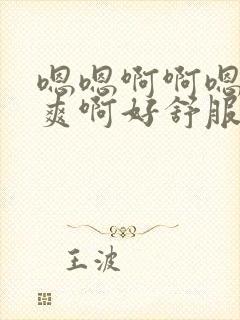 嗯嗯啊啊嗯
爽啊好舒服
王波